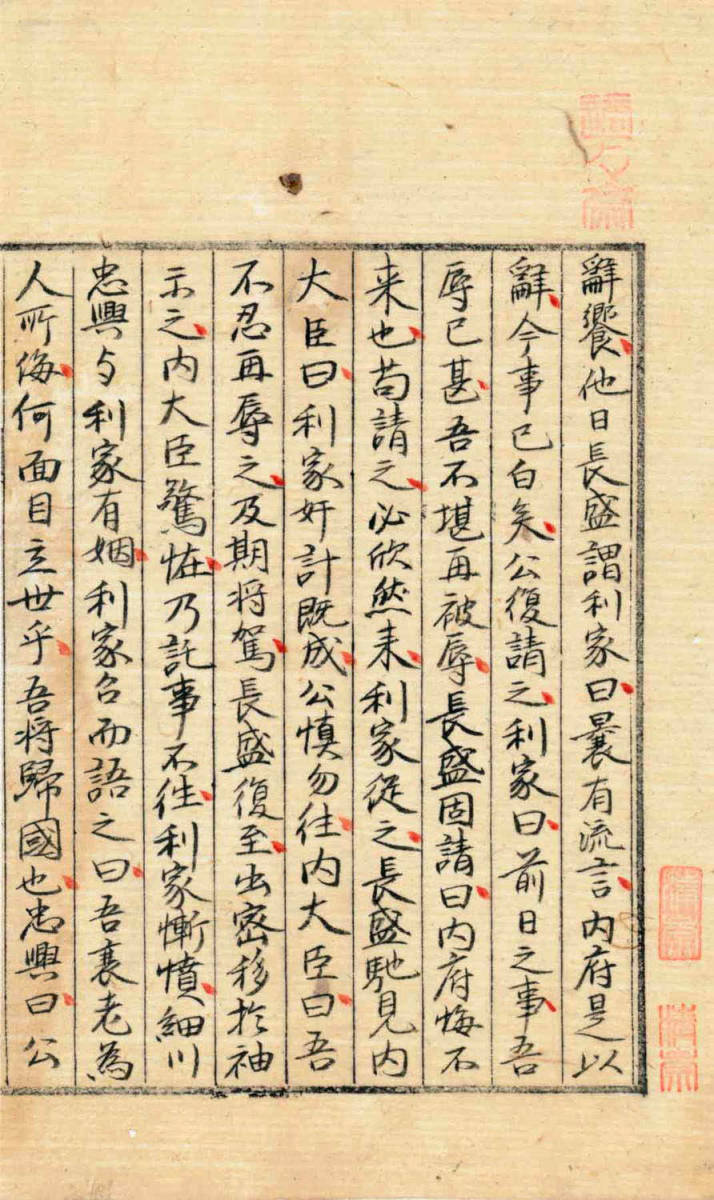 辭饗他日長盛謂利家曰曩有流言内府是以
辭今事已白矣公復請之利家曰前日之事吾
辱已甚吾不堪再被辱長盛固請曰内府悔不
来也苟請之必欣然来利家從之長盛馳見内
大臣曰利家奸計既成公慎勿往内大臣曰吾
不忍再辱之及期将駕長盛復至出密移於袖
示之内大臣驚恠乃託事不往利家慚憤細川
忠興与利家有姻利家召而語之曰吾衰老為
人所侮何面目立世乎吾将歸國也忠興曰公